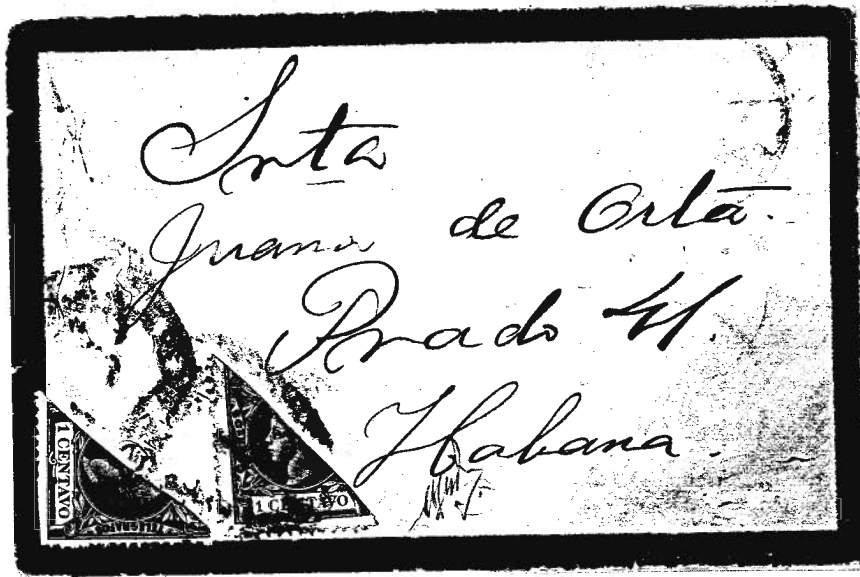 Srta
Juana de Orta.
Prado 41.
Habana.
1 CENTAVO
TELEGRAFOS
1 CENTAVO